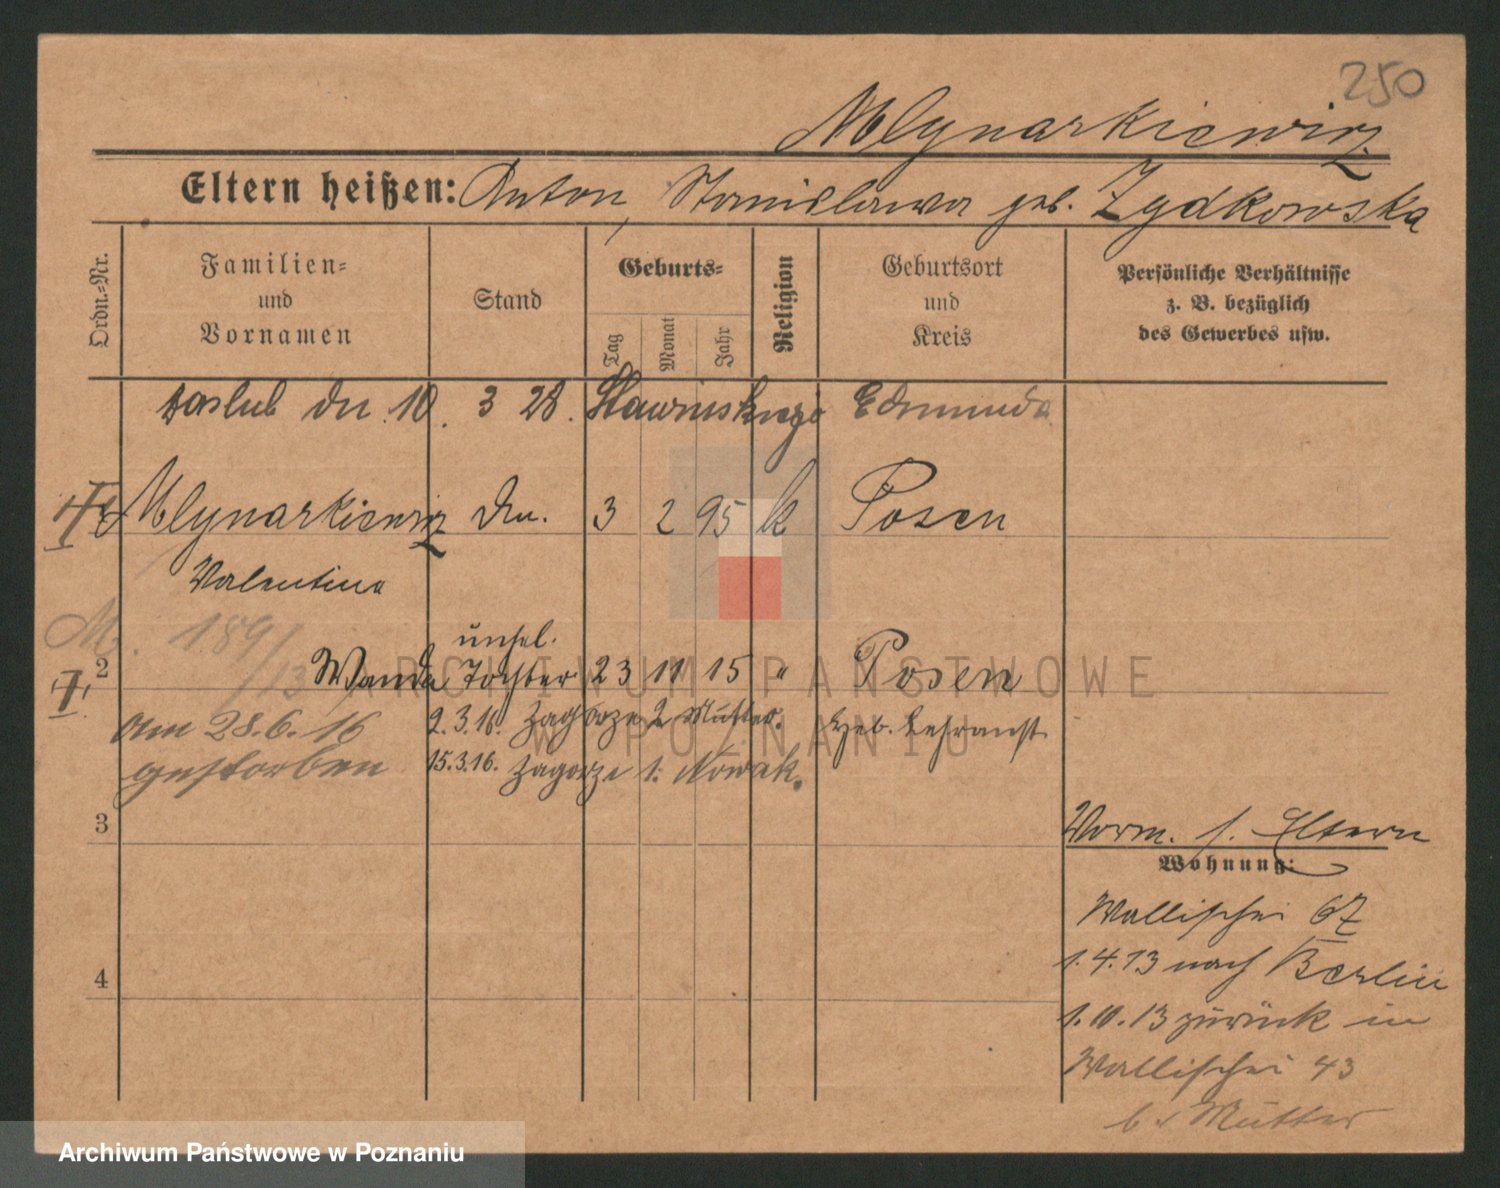 250
Mlynarkiewicz
Eltern heißen: Anton, Stanislawa geb. Zydkowska
Ordn.=Nr.
Familien=
und
Vornamen
Stand
Geburts=
Tag
Monat
Jahr
Religion
Geburtsort
und
Kreis
Persönliche Verhältnisse
z. B. bezüglich
des Gewerbes usw.
dn. 10. 3 28. Sławińskiego Edmunda
Mlynarkiewicz 3 2 95 k Posen
Valentina
M. 189/13
unehel.
2 Wanda Tochter 23 11 15 " Posen
am 28.6.16 9.3.16. Zagorze 2 Mutter. Heb. Lehranst.
gestorben 15.3.16. Zagorze 1. Nowak.
3
Vorm. s. Eltern
Wohnung:
Wallischei 67
1.4.13 nach Berlin
4
1.10.13 zurück in
Wallischei 43
b. Mutter
ARCHIWUM PAŃSTWOWE
W POZNANIU
Archiwum Państwowe w Poznaniu